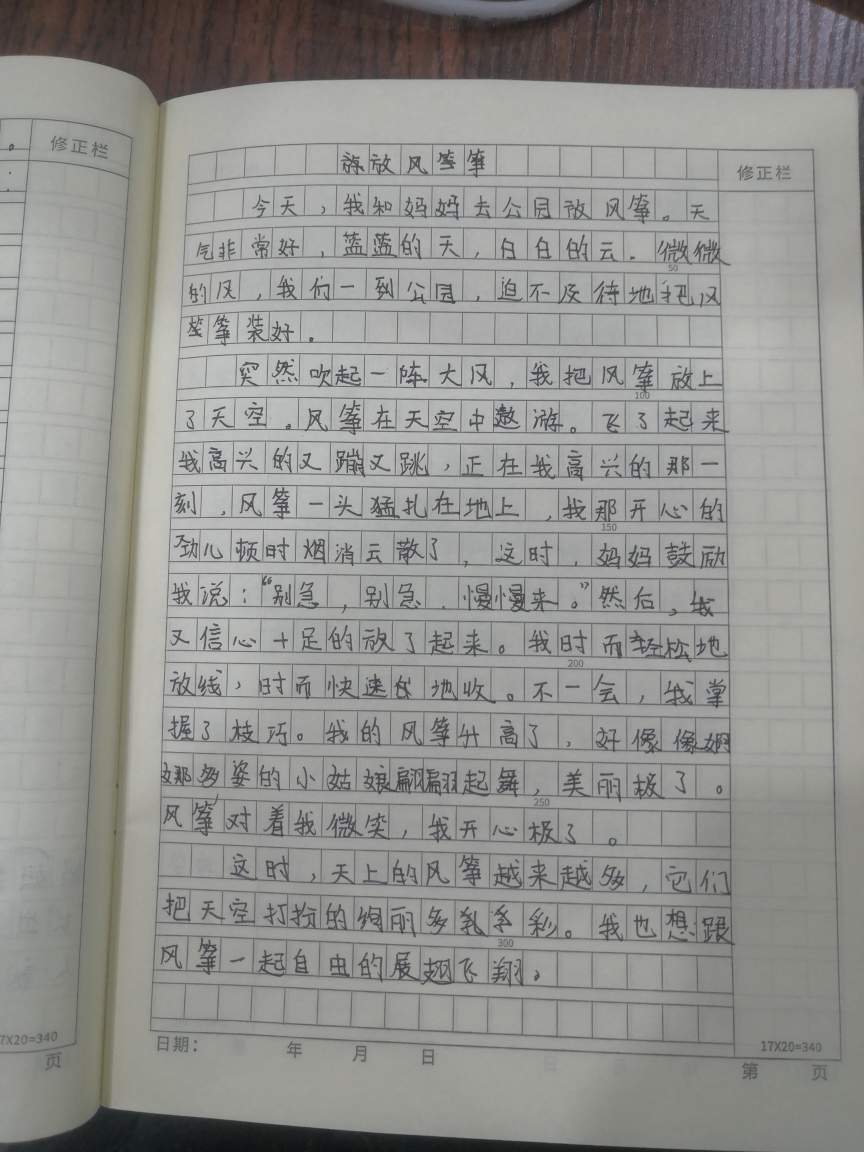 。
修正栏
放风筝
修正栏
今天，我和妈妈去公园放风筝。天
气非常好，蓝蓝的天，白白的云。微微
的风，我们一到公园，迫不及待地把风
筝装好。
突然吹起一阵大风，我把风筝放上
了天空。风筝在天空中遨游。飞了起来
我高兴的又蹦又跳，正在我高兴的那一
刻，风筝一头猛扎在地上，我那开心的
劲儿顿时烟消云散了，这时，妈妈鼓励
我说：“别急，别急，慢慢来。”然后，我
又信心十足的放了起来。我时而轻松地
放线，时而快速地收。不一会，我掌
握了枝巧。我的风筝升高了，好像像婀
娜多姿的小姑娘翩翩起舞，美丽极了。
风筝对着我微笑，我开心极了。
这时，天上的风筝越来越多，它们
把天空打扮的绚丽多彩。我也想跟
风筝一起自由的展翅飞翔。
50
100
150
200
250
300
7X20=340
页
日期： 年 月 日
17X20=340
第 页